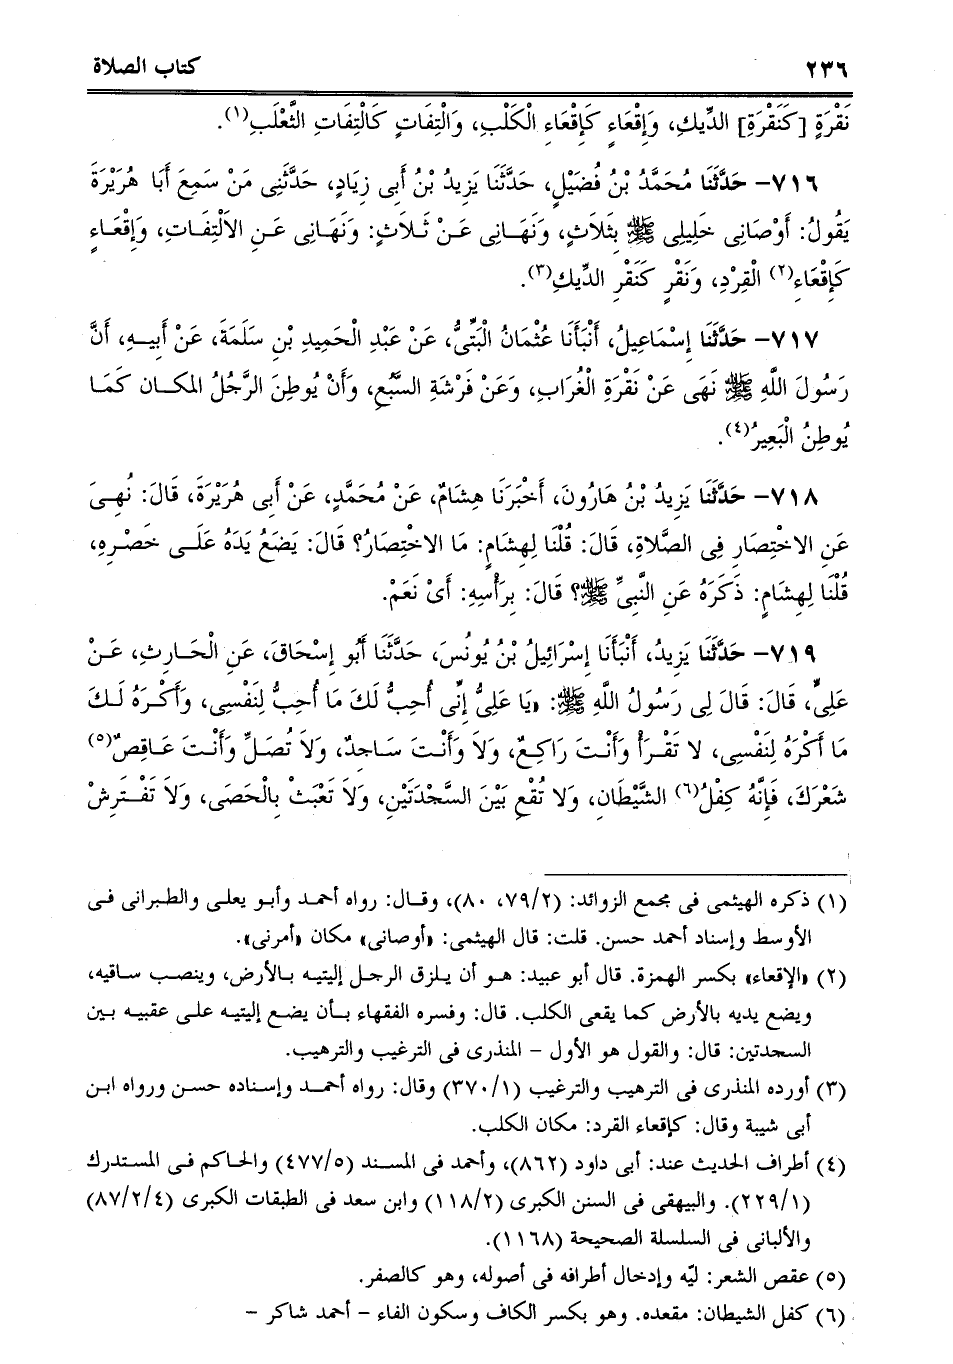 ٢٣٦ كتاب الصلاة
نَقْرَةٍ [كَنَقْرَةِ] الدِّيكِ، وَإِقْعَاءٍ كَإِقْعَاءِ الْكَلْبِ، وَالْتِفَاتٍ كَالْتِفَاتِ الثَّعْلَبِ(١).
٧١٦- حَدَّثَنَا مُحَمَّدُ بْنُ فُضَيْلٍ، حَدَّثَنَا يَزِيدُ بْنُ أَبِى زِيَادٍ، حَدَّثَنِى مَنْ سَمِعَ أَبَا هُرَيْرَةَ
يَقُولُ: أَوْصَانِى خَلِيلِى ﷺ بِثَلاثٍ، وَنَهَانِى عَنْ ثَلاثٍ: وَنَهَانِى عَنِ الالْتِفَاتِ، وَإِقْعَاءٍ
كَإِقْعَاءِ(٢) الْقِرْدِ، وَنَقْرٍ كَنَقْرِ الدِّيكِ(٣).
٧١٧- حَدَّثَنَا إِسْمَاعِيلُ، أَنْبَأَنَا عُثْمَانُ الْبَتِّىُّ، عَنْ عَبْدِ الْحَمِيدِ بْنِ سَلَمَةَ، عَنْ أَبِيهِ، أَنَّ
رَسُولَ اللَّهِ ﷺ نَهَى عَنْ نَقْرَةِ الْغُرَابِ، وَعَنْ فَرْشَةِ السَّبُعِ، وَأَنْ يُوطِنَ الرَّجُلُ الْمَكَانَ كَمَا
يُوطِنُ الْبَعِيرُ(٤).
٧١٨- حَدَّثَنَا يَزِيدُ بْنُ هَارُونَ، أَخْبَرَنَا هِشَامٌ، عَنْ مُحَمَّدٍ، عَنْ أَبِى هُرَيْرَةَ، قَالَ: نُهِىَ
عَنِ الاخْتِصَارِ فِى الصَّلاةِ، قَالَ: قُلْنَا لِهِشَامٍ: مَا الاخْتِصَارُ؟ قَالَ: يَضَعُ يَدَهُ عَلَى خَصْرِهِ،
قُلْنَا لِهِشَامٍ: ذَكَرَهُ عَنِ النَّبِىِّ ﷺ؟ قَالَ: بِرَأْسِهِ: أَىْ نَعَمْ.
٧١٩- حَدَّثَنَا يَزِيدُ، أَنْبَأَنَا إِسْرَائِيلُ بْنُ يُونُسَ، حَدَّثَنَا أَبُو إِسْحَاقَ، عَنِ الْحَارِثِ، عَنْ
عَلِىٍّ، قَالَ: قَالَ لِى رَسُولُ اللَّهِ ﷺ: «يَا عَلِىُّ إِنِّى أُحِبُّ لَكَ مَا أُحِبُّ لِنَفْسِى، وَأَكْرَهُ لَكَ
مَا أَكْرَهُ لِنَفْسِى، لا تَقْرَأْ وَأَنْتَ رَاكِعٌ، وَلا وَأَنْتَ سَاجِدٌ، وَلا تُصَلِّ وَأَنْتَ عَاقِصٌ(٥)
شَعْرَكَ، فَإِنَّهُ كِفْلُ(٦) الشَّيْطَانِ، وَلا تُقْعِ بَيْنَ السَّجْدَتَيْنِ، وَلا تَعْبَثْ بِالْحَصَى، وَلا تَفْتَرِشْ
(١) ذكره الهيثمى فى مجمع الزوائد: (٧٩/٢، ٨٠)، وقال: رواه أحمد وأبو يعلى والطبرانى فى
الأوسط وإسناد أحمد حسن. قلت: قال الهيثمى: «أوصانى» مكان «أمرنى».
(٢) «الإقعاء» بكسر الهمزة. قال أبو عبيد: هو أن يلزق الرجل إليتيه بالأرض، وينصب ساقيه،
ويضع يديه بالأرض كما يقعى الكلب. قال: وفسره الفقهاء بأن يضع إليتيه على عقبيه بين
السجدتين: قال: والقول هو الأول - المنذرى فى الترغيب والترهيب.
(٣) أورده المنذرى فى الترهيب والترغيب (٣٧٠/١) وقال: رواه أحمد وإسناده حسن ورواه ابن
أبى شيبة وقال: كإقعاء القرد: مكان الكلب.
(٤) أطراف الحديث عند: أبى داود (٨٦٢)، وأحمد فى المسند (٤٧٧/٥) والحاكم فى المستدرك
(٢٢٩/١). والبيهقى فى السنن الكبرى (١١٨/٢) وابن سعد فى الطبقات الكبرى (٨٧/٢/٤)
والألبانى فى السلسلة الصحيحة (١١٦٨).
(٥) عقص الشعر: ليّه وإدخال أطرافه فى أصوله، وهو كالصفر.
(٦) كفل الشيطان: مقعده. وهو بكسر الكاف وسكون الفاء - أحمد شاكر -